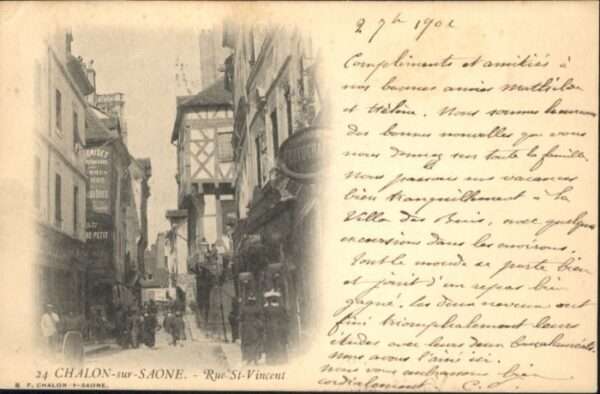 2 7bre 1901
Compliments et amitiés à
nos bonnes amies Mathilde
et Hélène. Nous sommes heureux
des bonnes nouvelles que vous
nous donnez sur toute la famille.
Nous passons nos vacances
bien tranquillement à la
Villa des Buis, avec quelques
excursions dans les environs.
Tout le monde se porte bien
et jouit d'un repos bien
gagné. Les deux neveux ont
fini triomphalement leurs
études avec leurs deux baccalauréats.
Nous avons l'aîné ici.
Nous vous embrassons bien
cordialement. C.
24 CHALON-sur-SAONE. - Rue St-Vincent
B. F. CHALON-S-SAONE.